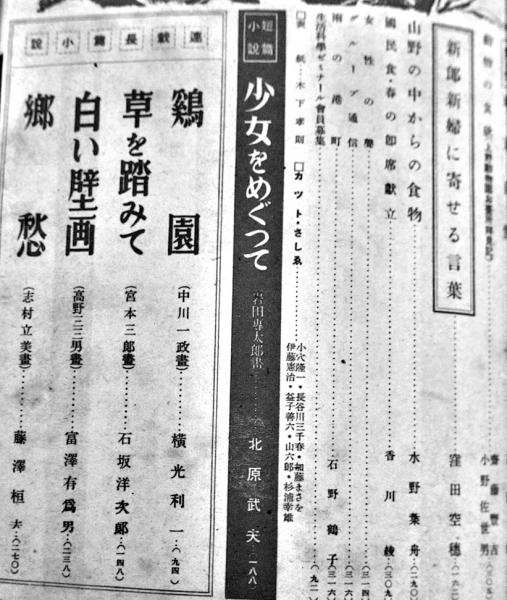 動物の食
齋藤豊吉
小野佐世男
新郎新婦に寄せる言葉………窪田空穂…(一六二)
山野の中からの食物………水野葉舟…(二九〇)
國民食・春の即席獻立………香川綾…(三〇九)
女性の聲………(三一四)
グループ通信………(三一六)
雨の港町………石野鶴子…(三一六)
生活科學ゼミナール會員募集………(九二)
□表紙…木下孝則 □カツト・さしゑ………小穴隆一・長谷川三千春・加藤まさを
伊藤憲治・益子善六・山六郎・杉浦幸雄
短篇小說
少女をめぐつて 岩田専太郎畫………北原武夫…一八八
連載長篇小說
鷄園(中川一政畫)………橫光利一…(九四)
草を踏みて(宮本三郎畫)………石坂洋次郎…(一四八)
白い壁画(高野三三男畫)………富澤有爲男…(二三八)
鄕愁(志村立美畫)………藤澤桓夫…(二七〇)